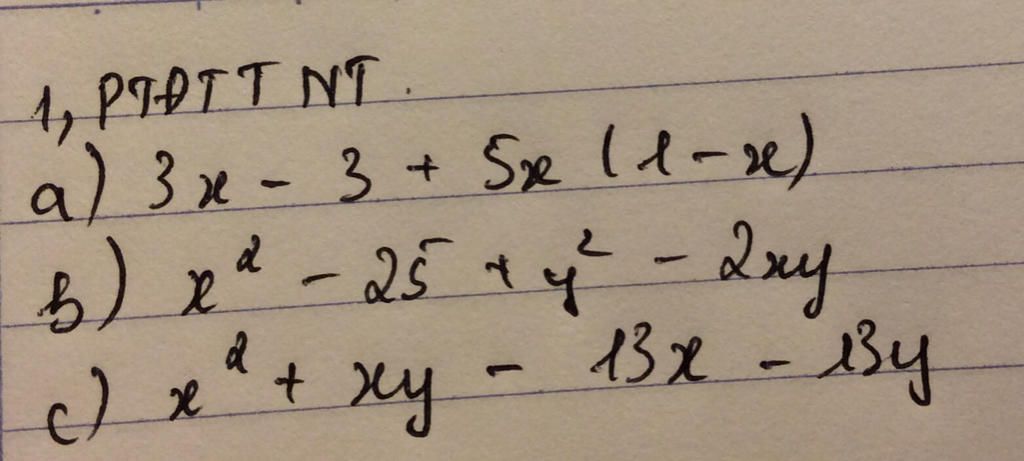 1, PTĐTTNT.
a) 3x - 3 + 5x (1 - x)
b) x² - 25 + y² - 2xy
c) x² + xy - 13x - 13y